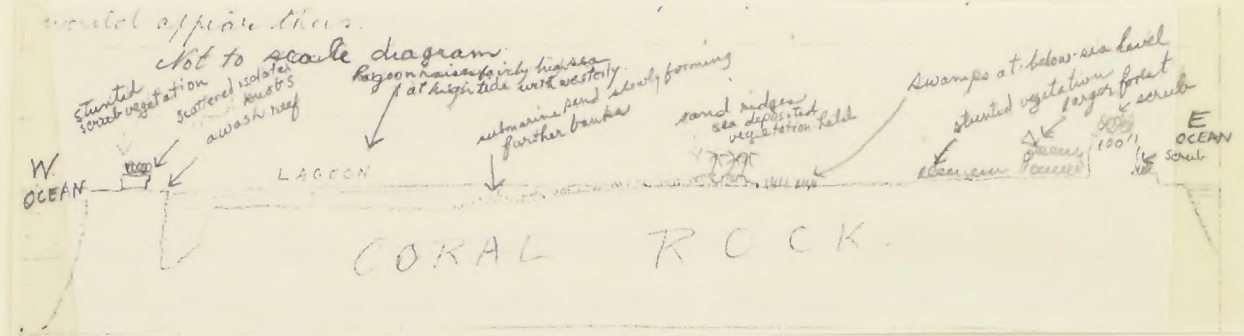 would appear thus.
Not to scale diagram.
stunted
scrub vegetation
scattered isolated
knobs
awash reef
Lagoon raises fairly high sea
at high tide with westerly.
submarine sand slowly forming
further banks
sand ridges
sea deposited
vegetation held
swamps at below-sea level
stunted vegetation
larger forest
scrub
W.
OCEAN
LAGOON
100'
E
OCEAN
scrub
CORAL ROCK.